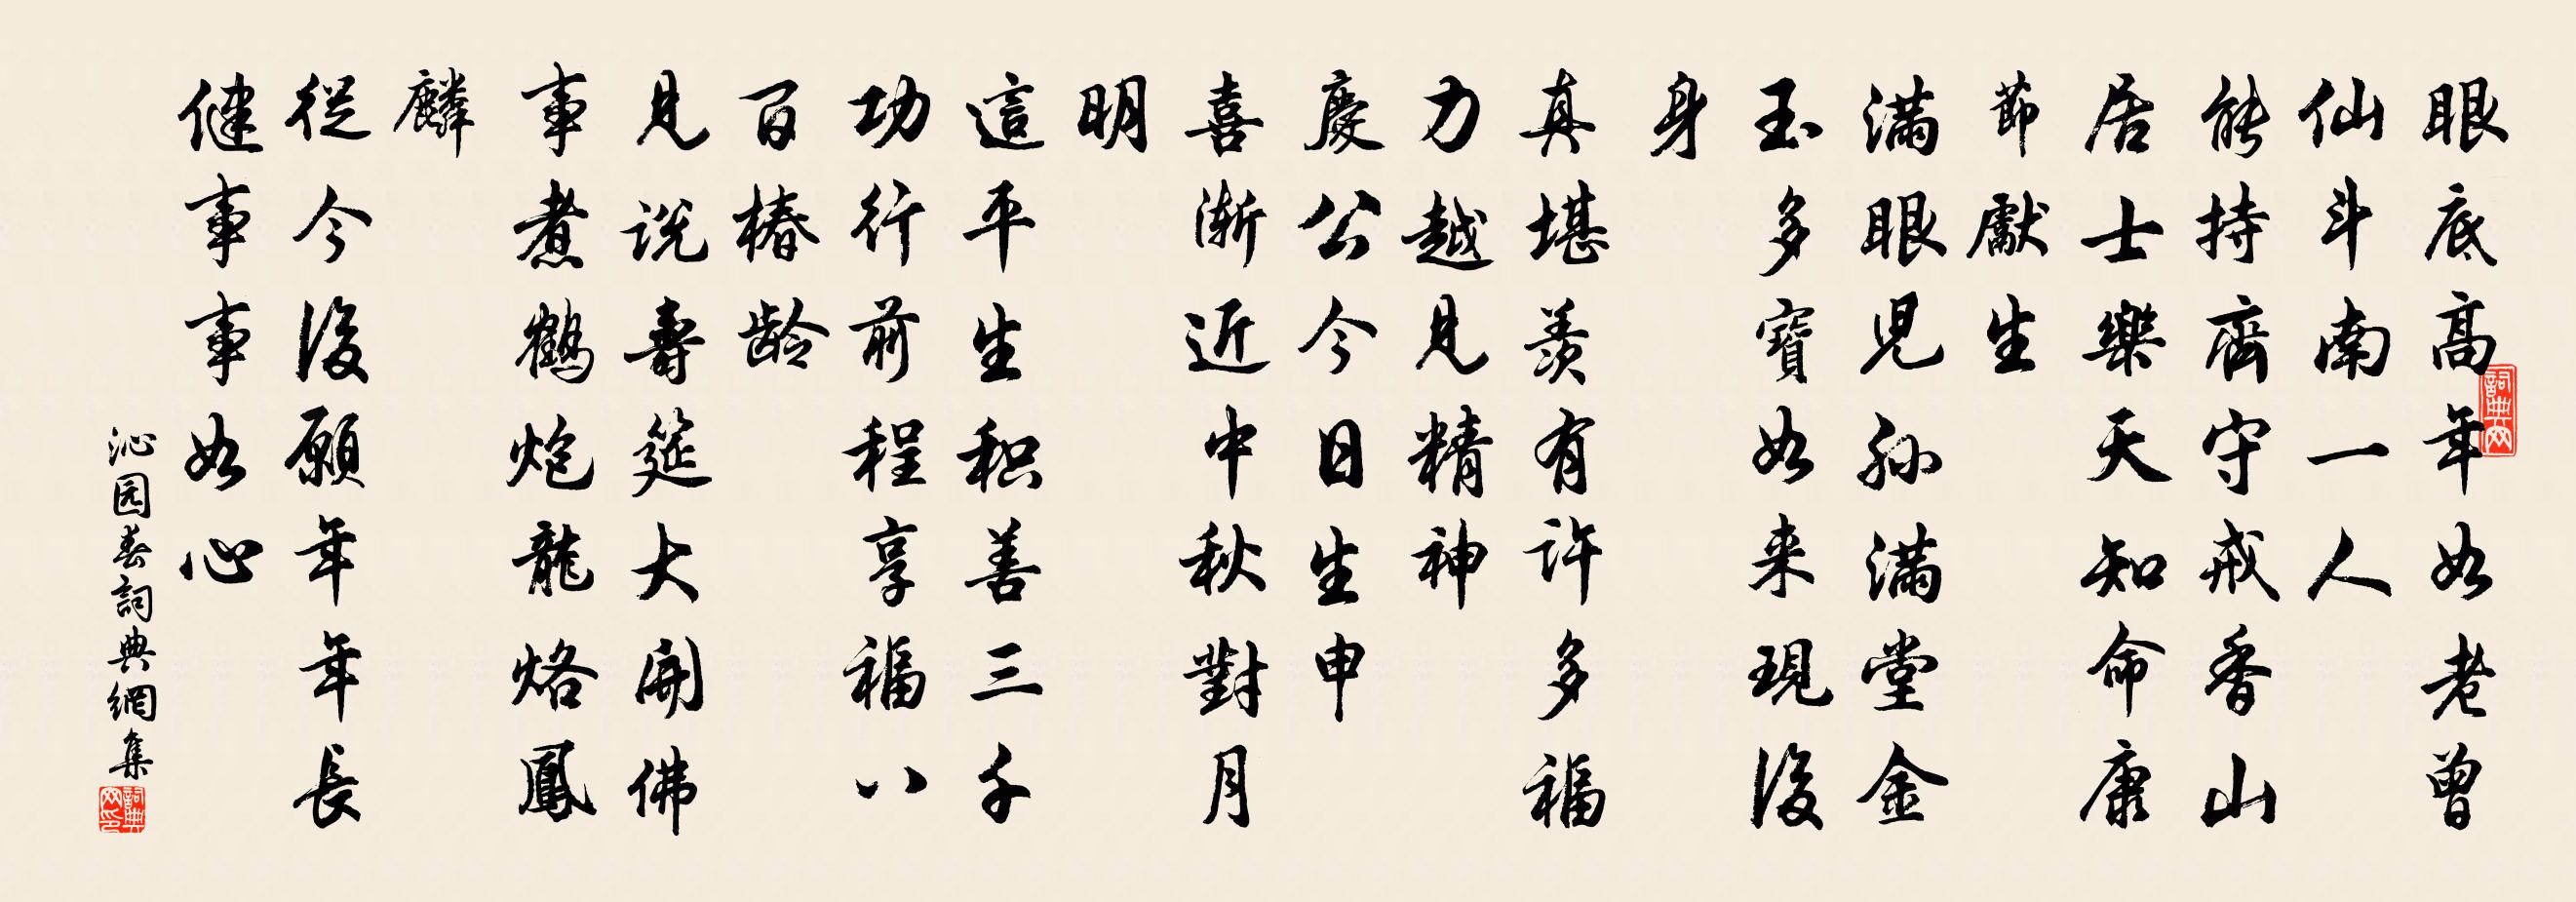 眼底高年如老曾
仙斗南一人
能持齋守戒香山
居士樂天知命康
節獻生
滿眼児孫滿堂金
玉多寶如来現後
身
真堪羨有許多福
力越見精神
慶公今日生申
喜漸近中秋對月
明
這平生积善三千
功行前程享福八
百椿龄
見説壽筵大開佛
事煮鶴炮龍烙鳳
麟
從今後願年年長
健事事如心
沁园春詞典網集
詞典网
詞典网印